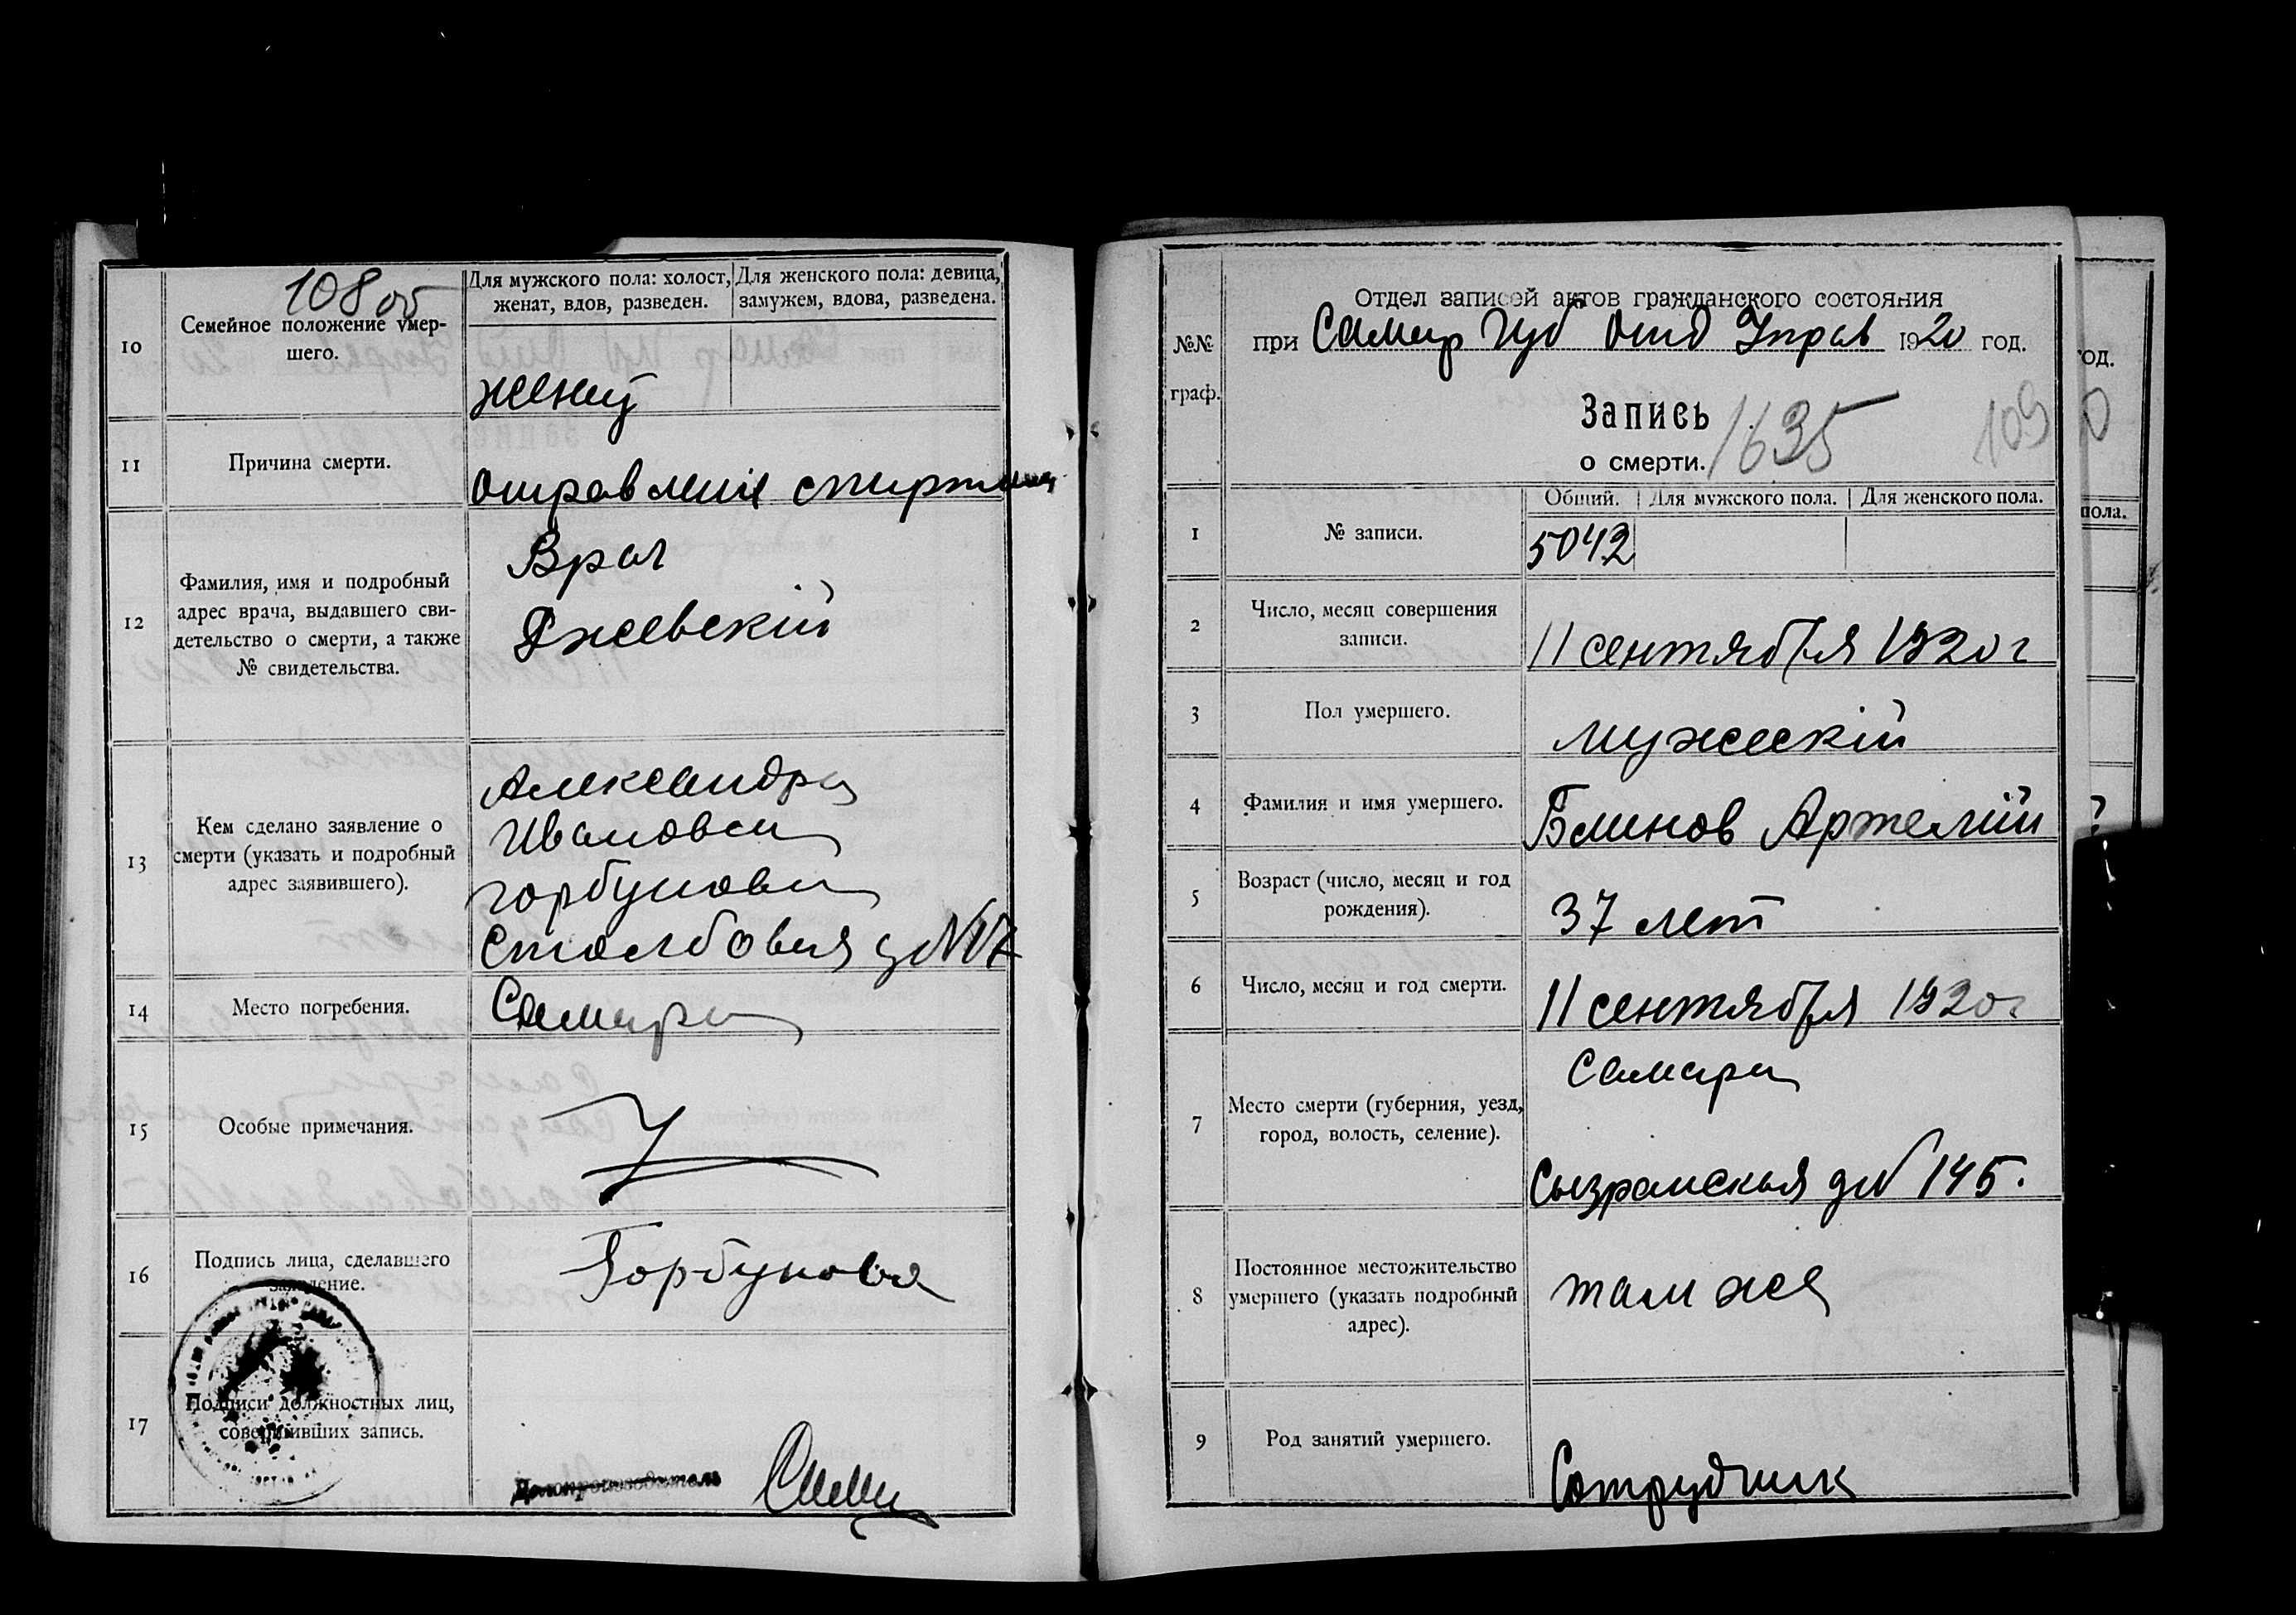 108 об
10
Семейное положение умер-
шего.
Для мужского пола: холост,
женат, вдов, разведен.
Для женского пола: девица,
замужем, вдова, разведена.
женат
11
Причина смерти.
отравление спиртом
12
Фамилия, имя и подробный
адрес врача, выдавшего сви-
детельство о смерти, а также
№ свидетельства.
Врач
Ржевскій
13
Кем сделано заявление о
смерти (указать и подробный
адрес заявившего).
Александра
Ивановна
горбунова
Столбовая д № 17
14
Место погребения.
Самара
15
Особые примечания.
16
Подпись лица, сделавшего
заявление.
Горбунова
17
Подписи должностных лиц,
совершивших запись.
Делопроизводитель
№№
граф.
Отдел записей актов гражданского состояния
при Самар Губ Отд Управ 1920 год.
Запись
о смерти.
1635
109
1
№ записи.
Общий.
Для мужского пола.
Для женского пола.
5042
2
Число, месяц совершения
записи.
11 сентября 1920 г
3
Пол умершего.
мужескій
4
Фамилия и имя умершего.
Блинов Артемій
5
Возраст (число, месяц и год
рождения).
37 лет
6
Число, месяц и год смерти.
11 сентября 1920 г
7
Место смерти (губерния, уезд,
город, волость, селение).
Самара
Сызранская д № 145.
8
Постоянное местожительство
умершего (указать подробный
адрес).
там же
9
Род занятий умершего.
Сотрудник
од.
0
пола.